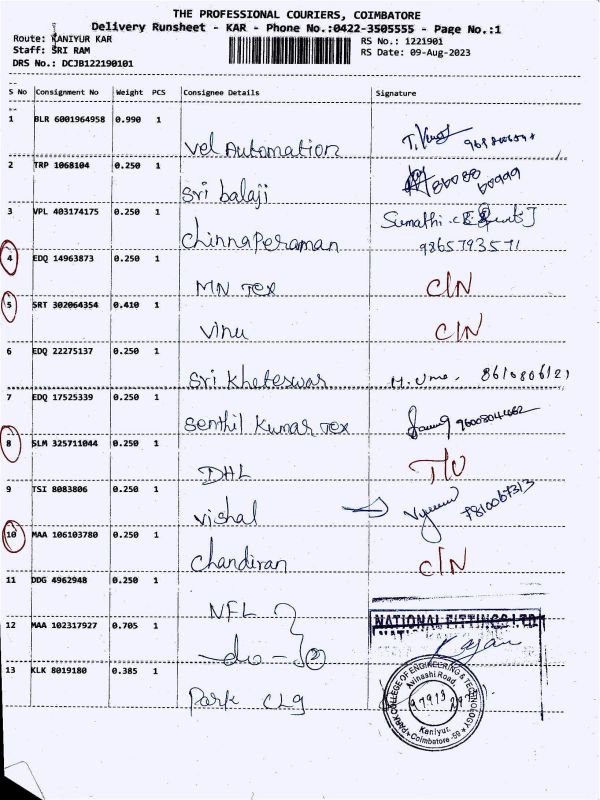 THE PROFESSIONAL COURIERS, COIMBATORE
Delivery Runsheet - KAR - Phone No.:0422-3505555 - Page No.:1
Route: KANIYUR KAR RS No.: 1221901
Staff: SRI RAM RS Date: 09-Aug-2023
DRS No.: DCJB122190101
S No Consignment No Weight PCS Consignee Details Signature
1 BLR 6001964958 0.990 1
Vel Automation
2 TRP 1068104 0.250 1
Sri balaji
3 VPL 403174175 0.250 1 Sumathi
Chinnaperaman 9865793571
4 EDQ 14963873 0.250 1
MN Tex C/N
5 SRT 302064354 0.410 1
Vinu C/N
6 EDQ 22275137 0.250 1
Sri Khateswar M. Uma. 8610806121
7 EDQ 17525339 0.250 1
Senthil Kumar Tex
8 SLM 325711044 0.250 1
DHL
9 TSI 8083806 0.250 1
Vishal 7810067313
10 MAA 106103780 0.250 1
Chandiran C/N
11 DDG 4962948 0.250 1
NFL
NATIONAL FITTINGS LTD
12 MAA 102317927 0.705 1
-do- 2
13 KLK 8019180 0.385 1
Park Clg
PARK COLLEGE OF ENGINEERING & TECHNOLOGY
Avinashi Road,
Kaniyur,
Coimbatore -59